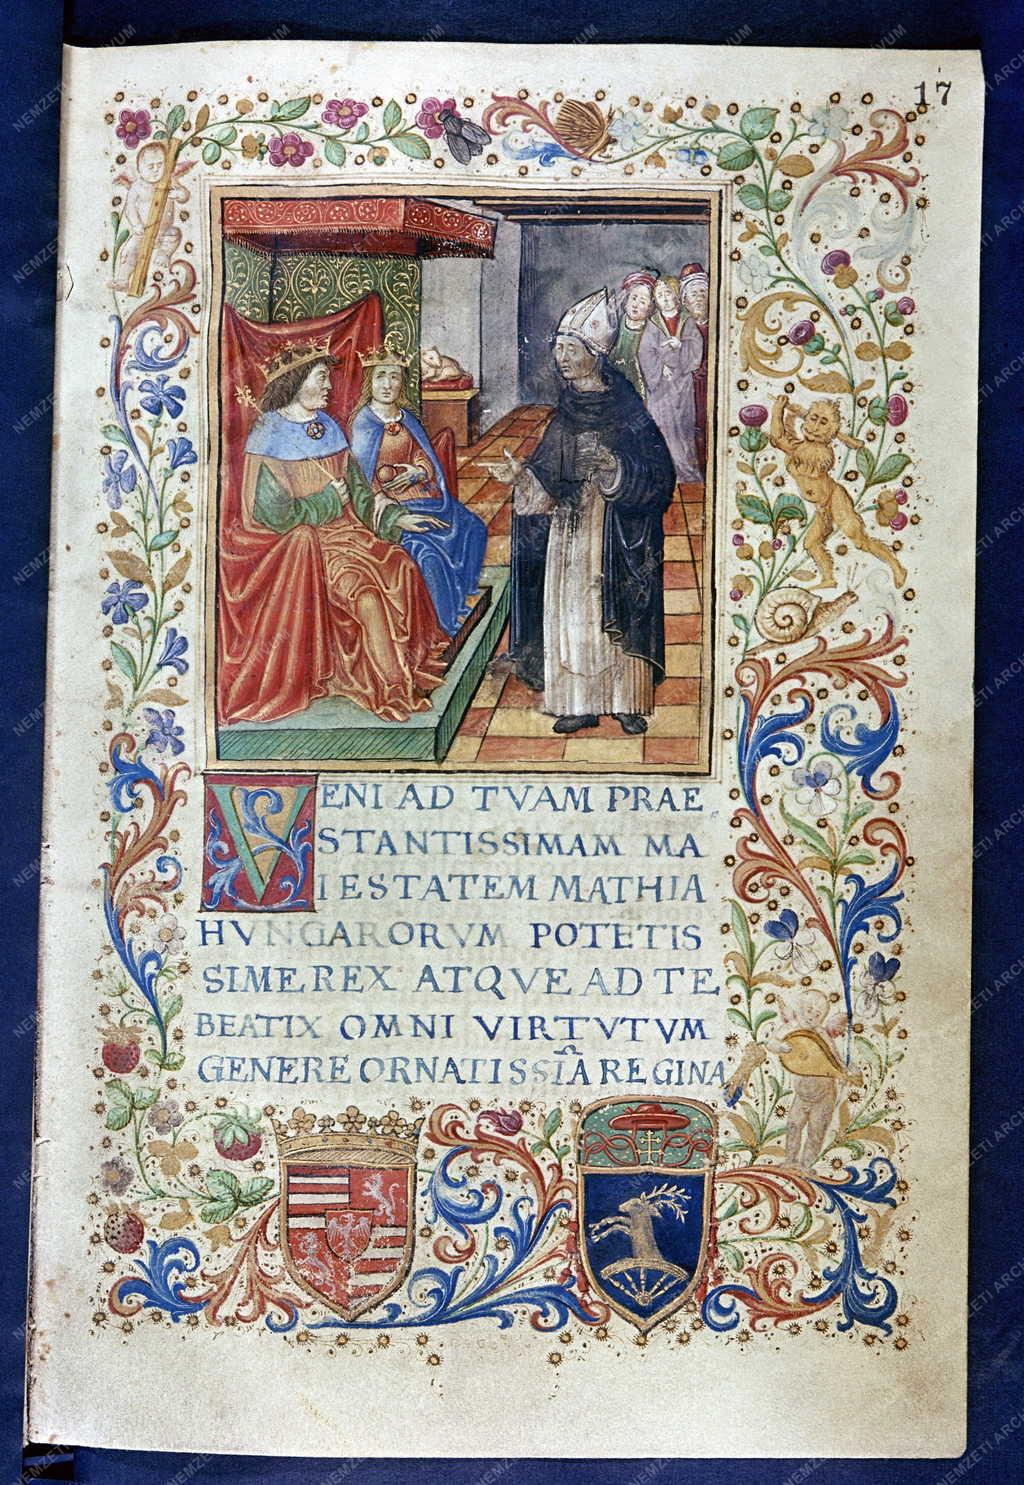 17
VENI AD TVAM PRAE
STANTISSIMAM MA
IESTATEM MATHIA
HVNGARORVM POTĒTIS
SIME REX ATQVE AD TE
BEATIX OMNI VIRTVTVM
GENERE ORNATISSIĀ REGINA
NEMZETI ARCHIVUM